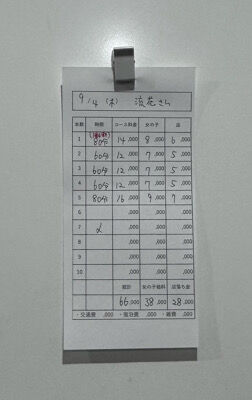 9/4 (木) 浪花さん
本数 時間 コース料金 女の子 店
1 80分 14,000 8,000 6,000
2 60分 12,000 7,000 5,000
3 60分 12,000 7,000 5,000
4 60分 12,000 7,000 5,000
5 80分 16,000 9,000 7,000
6 ,000 ,000 ,000
7 ,000 ,000 ,000
8 ,000 ,000 ,000
9 ,000 ,000 ,000
10 ,000 ,000 ,000
総計 女の子給料 店落ち金
66,000 38,000 28,000
・交通費 ,000 ・宿泊費 ,000 ・雑費 ,000